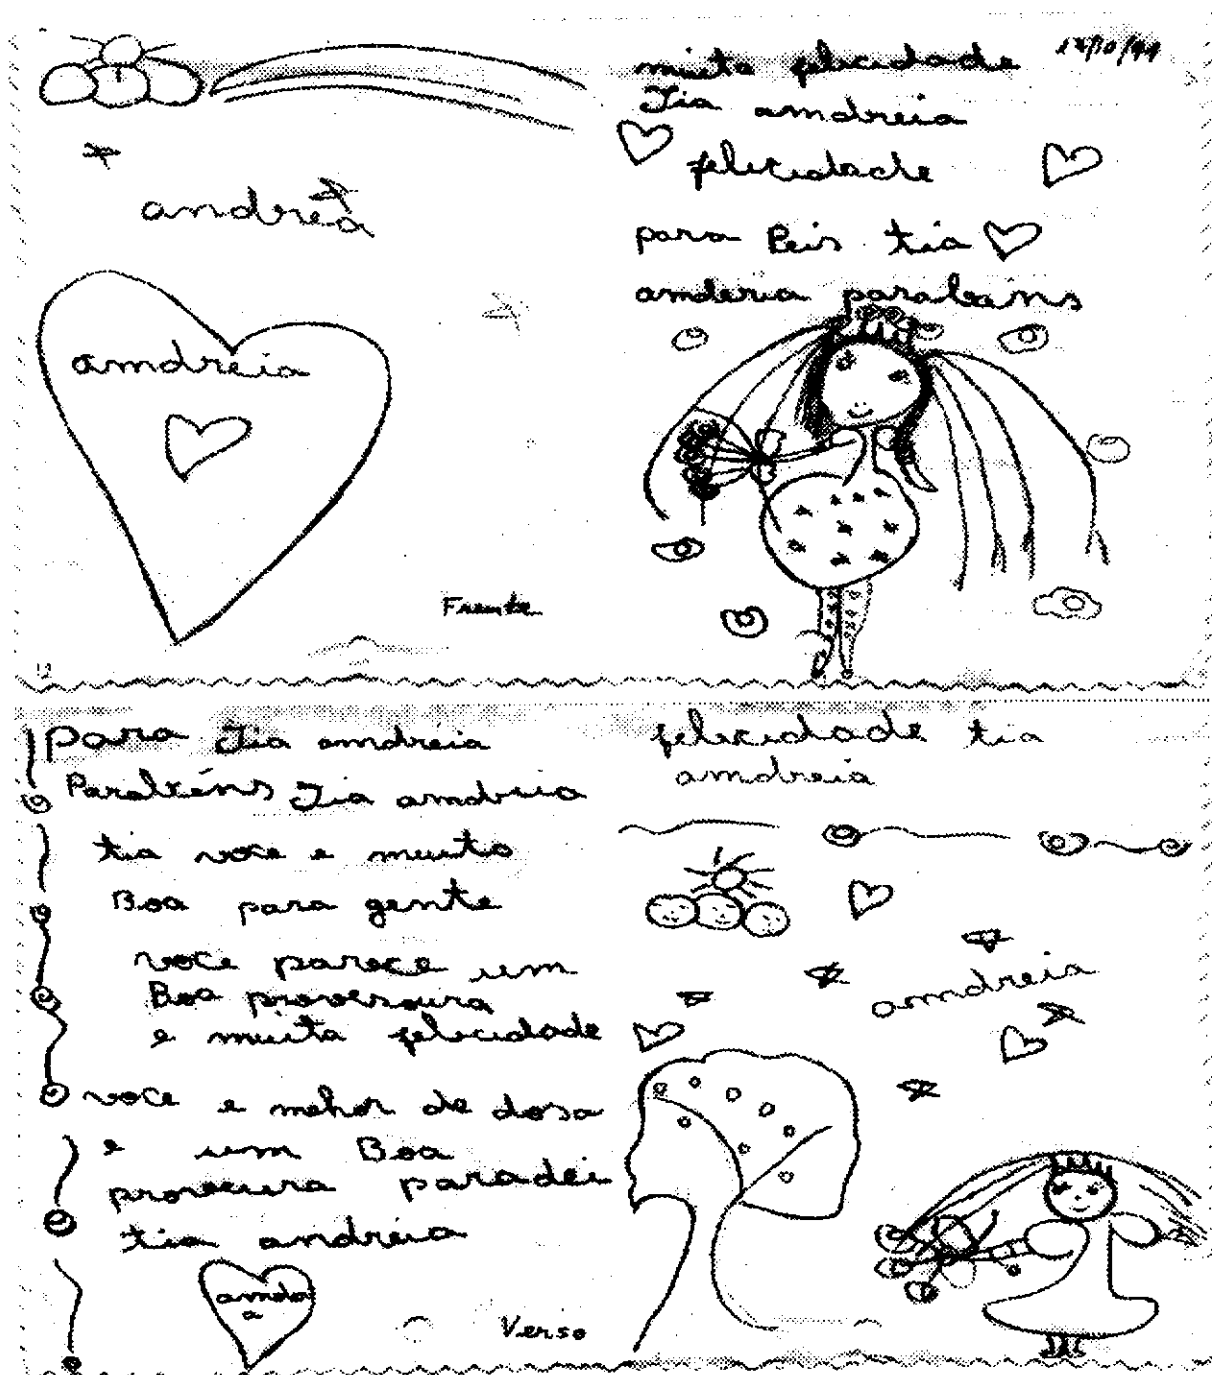 andrea
amdreia
Frente
muita felicidade
Tia amdreia
felicidade
para Peis tia
amderia parabains
para Tia amdreia
Parabéns Tia amdreia
tia voce e muito
Boa para gente
voce parece um
Boa
e muita felicidade
voce e mehor de dosa
e um Boa
paradei
tia andreia
Verso
felicidade tia
amdreia
amdreia